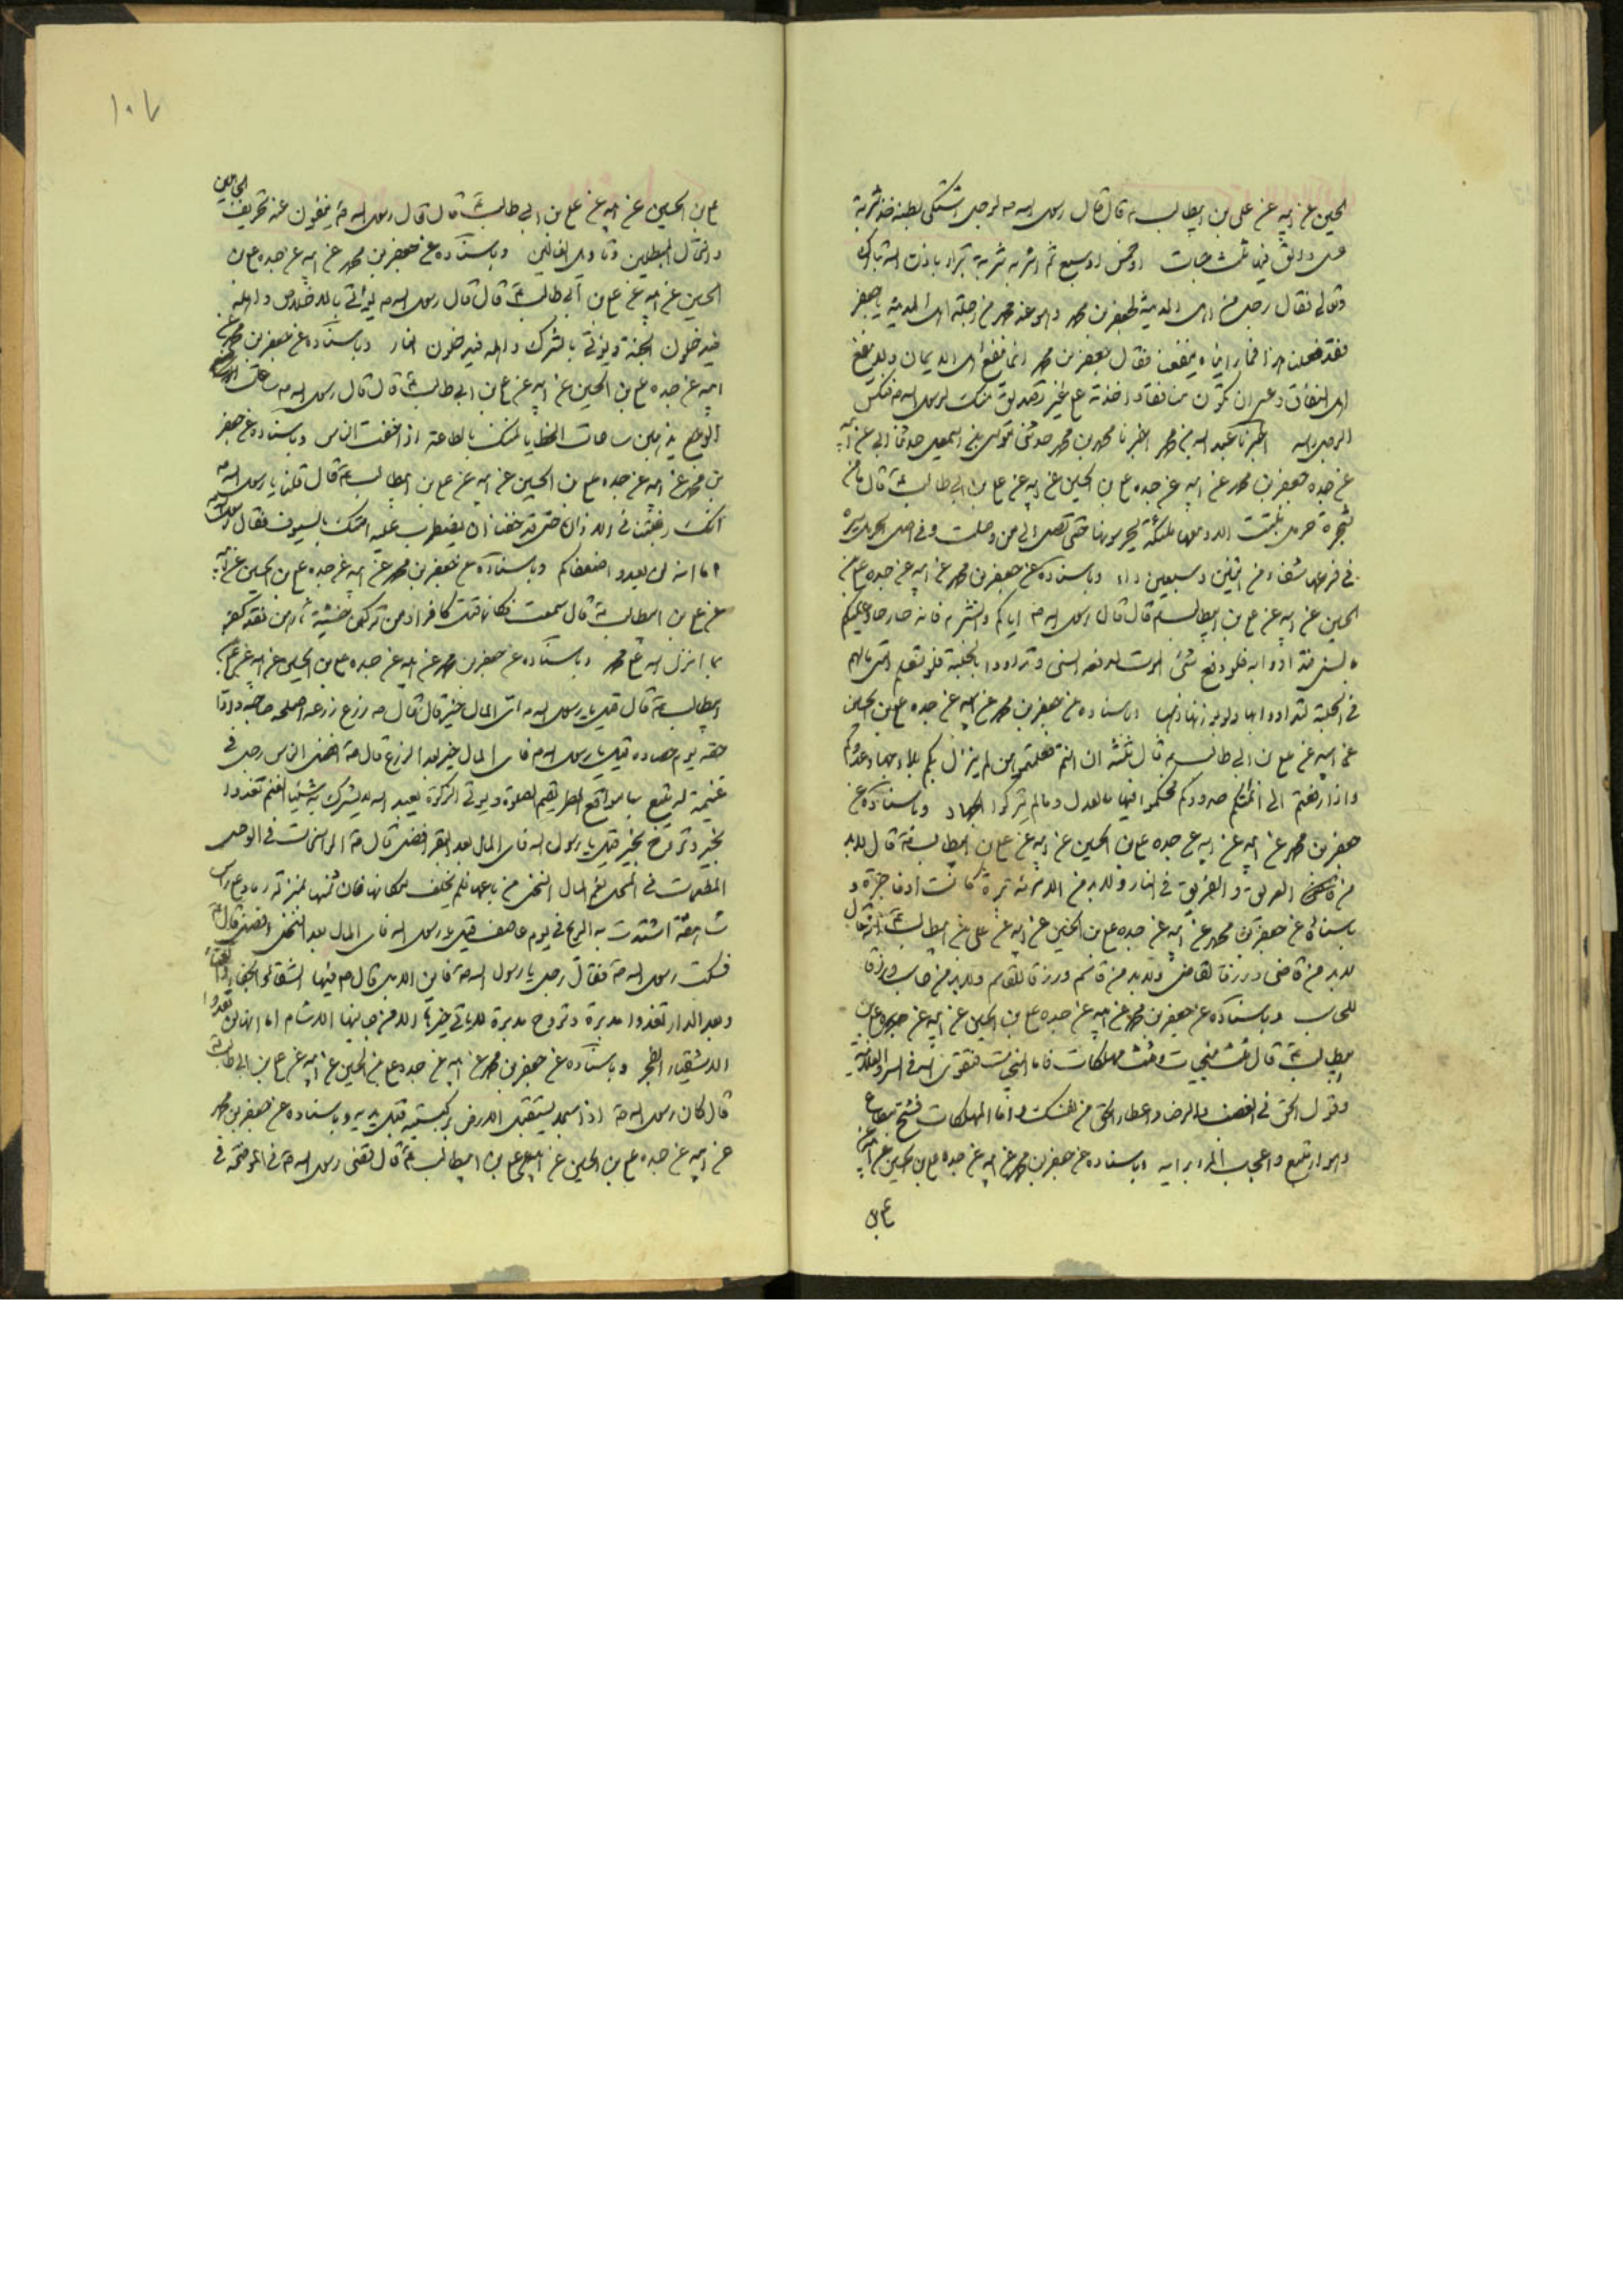 الحسين عن ابيه عن على بن ابيطالب ع قال قال رسول الله ص لرجل اشتكى بطنه خذ شربة
عسل والق فيها ثلث حبات او خمس او سبع ثم اشربه شربة تبراء باذن الله تبارك
وتعالى فقال رجل من اهل المدينة لجعفر بن محمد وهو عنده
فقد فعلنا هذا فما راينا ينفعنا فقال جعفر بن محمد انما ينفع اهل الايمان ولا ينفع
اهل النفاق وعسى ان تكون منافقا واخذته على غير تصديق منك لرسول الله ص فنكس
الرجل راسه اخبرنا عبد الله بن محمد اخبرنا محمد بن محمد حدثنى موسى بن اسمعيل حدثنا ابى عن ابيه
عن جده جعفر بن محمد عن ابيه عن جده على بن الحسين عن ابيه عن على بن ابى طالب ع قال ما من
شجرة حرمل نبتت الا ومعها ملئكة يحرسونها حتى تصل الى من وصلت وفى اصل الحرمل
فى فرعها شفاء من اثنين وسبعين داء وباسناده عن جعفر بن محمد عن ابيه عن جده على بن
الحسين عن ابيه عن على بن ابيطالب ع قال قال رسول الله ص
فلو دفع شئ الموت لدفعه السنى وتداووا بالحلبة فلو تعلم امتى مالهم
فى الحلبة لتداووا بها ولو بوزنها ذهبا وباسناده عن جعفر بن محمد عن ابيه عن جده على بن الحسين
عن ابيه عن على بن ابى طالب ع قال ثلثة ان انتم فعلتموهن لم ينزل بكم بلاء
واذا رفعتم الى ائمتكم حدودكم فحكموا فيها بالعدل ومالم تتركوا الجهاد وباسناده عن
جعفر بن محمد عن ابيه عن جده على بن الحسين عن ابيه عن على بن ابيطالب ع قال لابد
من العريف والعريف فى النار ولابد من الامرة برة كانت او فاجرة و
باسناده عن جعفر بن محمد عن ابيه عن جده على بن الحسين عن ابيه عن على بن ابيطالب ع انه قال
لابد من قاضى ورزق للقاضى ولابد من قاسم ورزق للقاسم ولابد من حاسب ورزق
للحاسب وباسناده عن جعفر بن محمد عن ابيه عن جده على بن الحسين عن ابيه عن
ابيطالب ع قال ثلث منجيات وثلث مهلكات فاما المنجيات فتقوى الله فى السر والعلانية
وقول الحق فى الغضب والرضا واعطاء الحق من نفسك واما المهلكات فشح مطاع
وهوى متبع واعجاب المرء برايه وباسناده عن جعفر بن محمد عن ابيه عن جده على بن الحسين عن ابيه عن
على بن
١٠٧
على بن الحسين عن ابيه عن على بن ابى طالب ع قال قال رسول الله ص ينفون عنه تحريف الجاهلين
وانتحال المبطلين وتاويل الغالين وباسناده عن جعفر بن محمد عن ابيه عن جده على بن
الحسين عن ابيه عن على بن ابى طالب ع قال قال رسول الله ص يؤتى بالاخلاص واهله
فيدخلون الجنة ويؤتى بالشرك واهله فيدخلون النار وباسناده عن جعفر بن محمد عن
ابيه عن جده على بن الحسين عن ابيه عن على بن ابى طالب ع قال قال رسول الله ص
يذهبن ساعات الخطايا اذا اختلفت الناس وباسناده عن جعفر
بن محمد عن ابيه عن جده على بن الحسين عن ابيه عن على بن ابيطالب ع قال قلنا يا رسول الله ص
انك رغبتنا فى الاذان حتى قد خفنا ان يضطرب عليه امتك بالسيوف فقال رسول الله
اما انه لن يعدوا ضعفائكم وباسناده عن جعفر بن محمد عن ابيه عن جده على بن الحسين عن ابيه
عن على بن ابيطالب ع قال سمعت فكانما قتلت كافرا ومن تركهن خشية ثارهن فقد كفر
بما انزل الله على محمد وباسناده عن جعفر بن محمد عن ابيه عن جده على بن الحسين عن ابيه عن على بن
ابيطالب ع قال قيل يا رسول الله ص اى المال خير قال قال ص زرع زرعه اصلحه صاحبه وادى
حقه يوم حصاده قيل يا رسول الله ص فاى المال خير بعد الزرع قال ص افضل الناس رجل فى
غنيمة له يتبع بها مواقع المطر يقيم الصلوة ويؤتى الزكوة يعبد الله لا يشرك به شيئا الغنم تغدوا
بخير وتروح بخير قيل يا رسول الله فاى المال بعد البقر افضل قال ص الراسخات فى الوحل
المطعمات فى المحل نعم المال النخل من باعها فلم يخلف مكانها فان ثمنها بمنزلة رماد على راس
شاهقة اشتدت به الريح فى يوم عاصف قيل يا رسول الله فاى المال بعد النخل افضل قال
فسكت رسول الله ص فقال رجل يا رسول الله ص فاين الابل قال ص فيها الشقاء والجفاء والعناء
وبعد الدار تغدوا مدبرة وتروح مدبرة لا ياتى خيرها الا من جانبها الاشام اما انها لن تعدوا
الاشقياء الفجر وباسناده عن جعفر بن محمد عن ابيه عن جده على بن الحسين عن ابيه عن على بن ابى طالب ع
قال كان رسول الله ص اذا سجد يستقبل الارض بركبتيه قبل يديه وباسناده عن جعفر بن محمد
عن ابيه عن جده على بن الحسين عن ابيه عن على بن ابيطالب ع قال قضى رسول الله ص فى الموضحة فى